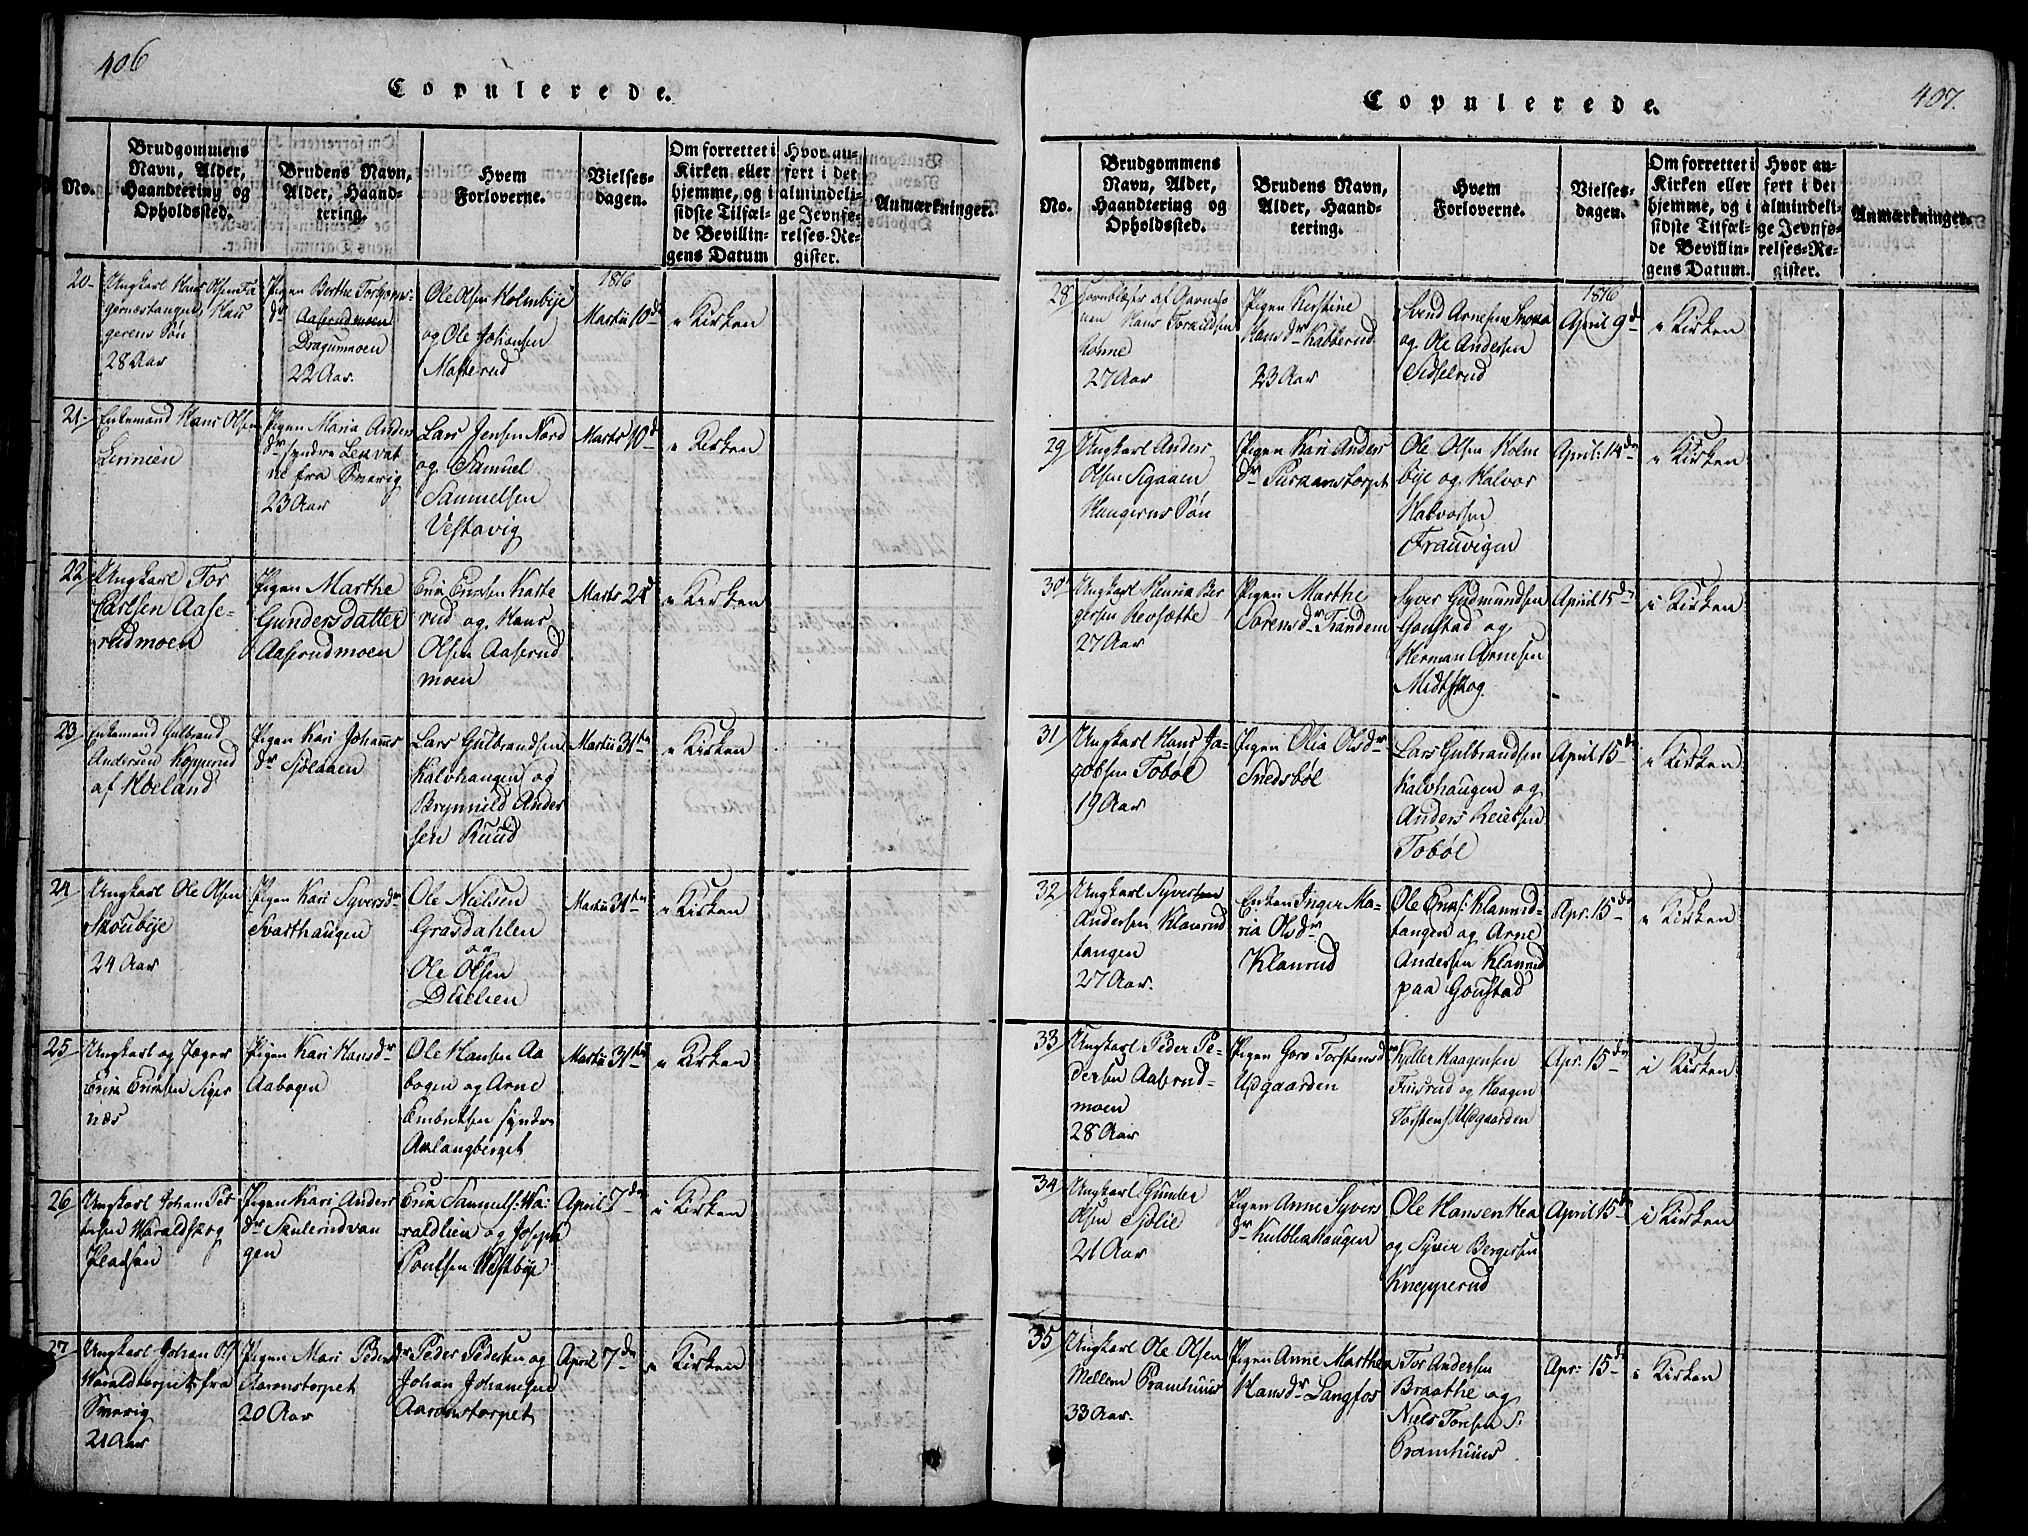 406
Copulerede.
No.
Brudgommens
Navn, Alder,
Haandtering og
Opholdssted.
Brudens Navn,
Alder, Haand-
tering.
Hvem
Forloverne.
Vielses-
dagen.
Om forrettet i
Kirken eller
hjemme, og i
sidste Tilfæl-
de Bevillin-
gens Datum
Hvor an-
ført i det
almindeli-
ge Jevnfø-
relses-Re-
gister.
Anmærkninger.
20
Ungkarl Hans Olsen
28 Aar
Pigen Berthe
dr Aaserudmoen
Dragunmoen
22 Aar.
Ole Olsen Holmbÿe
og Ole Johansen
Masterud
1816
Martii 10de
i Kirken
21
Enkemand Hans Olsen
Linnien
Pigen Maria Anders
dr
23 Aar
Lars Jensen Nord
og Samuel
Samuelsen
Vestavig
Marts 10d
i Kirken
22
Ungkarl Tor
Carlsen Aase-
rudmoen
Pigen Marthe
Gundersdatter
Aaserudmoen
rud og Hans
Olsen Aaserud
moen
Marts 24d
i Kirken
23
Enkemand Gulbrand
Andersen Kopperud
af Høland
Pigen Kari Johanns
dr Siølaaen
Lars Gulbrandsen
Kalvhaugen og
Brynnild Ander
sen Ruud
Martii 31te
i Kirken
24
Ungkarl Ole Olsen
Skoubÿe
24 Aar
Pigen Kari Syversdr
Svarthaugen
Ole Nielsen
Grasdahlen
og
Ole Olsen
Martii 31te
i Kirken
25
Ungkarl og Jæger
Eric Ericksen Siger
næs
Pigen Kari Hansdr
Aabogen
Ole Hansen Aa
bogen og Arne
Embretsen syndre
Aslangberget
Martii 31te
i Kirken
26
Ungkarl Johan Pet
tersen Varaldskog
Pigen Kari Anders
dr Skulerudvan
gen
Eric Samuels: Va
raldlien og Joseph
Poulsen Vestbÿe
April 7de
i Kirken
27
Ungkarl Johan
Varaldtorpet fra
21 Aar
Pigen Mari Pedersdr
Aaronstorpet
20 Aar
Peder Pedersen og
Johan Johansen
Aaronstorpet
April 7de
i Kirken
407.
Copulerede.
No.
Brudgommens
Navn, Alder,
Haandtering og
Opholdssted.
Brudens Navn,
Alder, Haand-
tering.
Hvem
Forloverne.
Vielses-
dagen.
Om forrettet i
Kirken eller
hjemme, og i
sidste Tilfæl-
de Bevillin-
gens Datum.
Hvor an-
ført i det
almindeli-
ge Jevnfø-
relses-Re-
gister.
Anmærkninger.
28
Hornblæser af Garniso
nen Hans
27 Aar
Pigen Kerstine
Hansdr Kabberud
23 Aar
Svend Arnesen
og Ole Andersen
Sidselrud
1816
April 9d
i Kirken
29
Ungkarl Anders
Olsen Sigaaen
Pigen Kari Anders
dr
Ole Olsen Holm
bÿe og Halvor
Halvorsen
Frauvigen
April: 14de
i Kirken
30
Ungkarl Henric Ber
gersen Revsætte
27 Aar
Pigen Marthe
Sorensdr Trandem
Syver Gudmundsen
Goustad og
Herman Arnesen
Midtskog.
April 15de
i Kirken
31
Ungkarl Hans Ja-
cobsen Tobøl
19 Aar
Pigen Olia Olsdr
Snedsbøl
Lars Gulbrandsen
Kalvhaugen og
Anders Reiersen
Tobøl
April 15de
i Kirken
32
Ungkarl Syversen
Andersen Klanrud
tangen
27 Aar.
Enken Inger Ma-
ria Olsdr
Klanrud
Ole Erics: Klanrud-
tangen og Arne
Andersen Klanrud
paa Goustad
Apr: 15de
i Kirken
33
Ungkarl Peder Pe-
dersen Aaserud-
moen
28 Aar
Pigen Goro Torstensdr
Upgaarden
Keller Haagensen
Finsrud og Haagen
Torstens: Upgaarden
Apr: 15de
i Kirken
34
Ungkarl Gunder
Olsen Siølie
21 Aar
Pigen Anne Syvers
dr Kulblikhaugen
Ole Hansen Hea
og Syver Bergersen
Knepperud
April 15de
i Kirken
35
Ungkarl Ole Olsen
Mellem Bramhuus
33 Aar.
Pigen Anne Marthea
Hansdr Langfos
Tor Andersen
Braathe og
Niels Toresen S:
Bramhuus
Apr: 15de
i Kirken